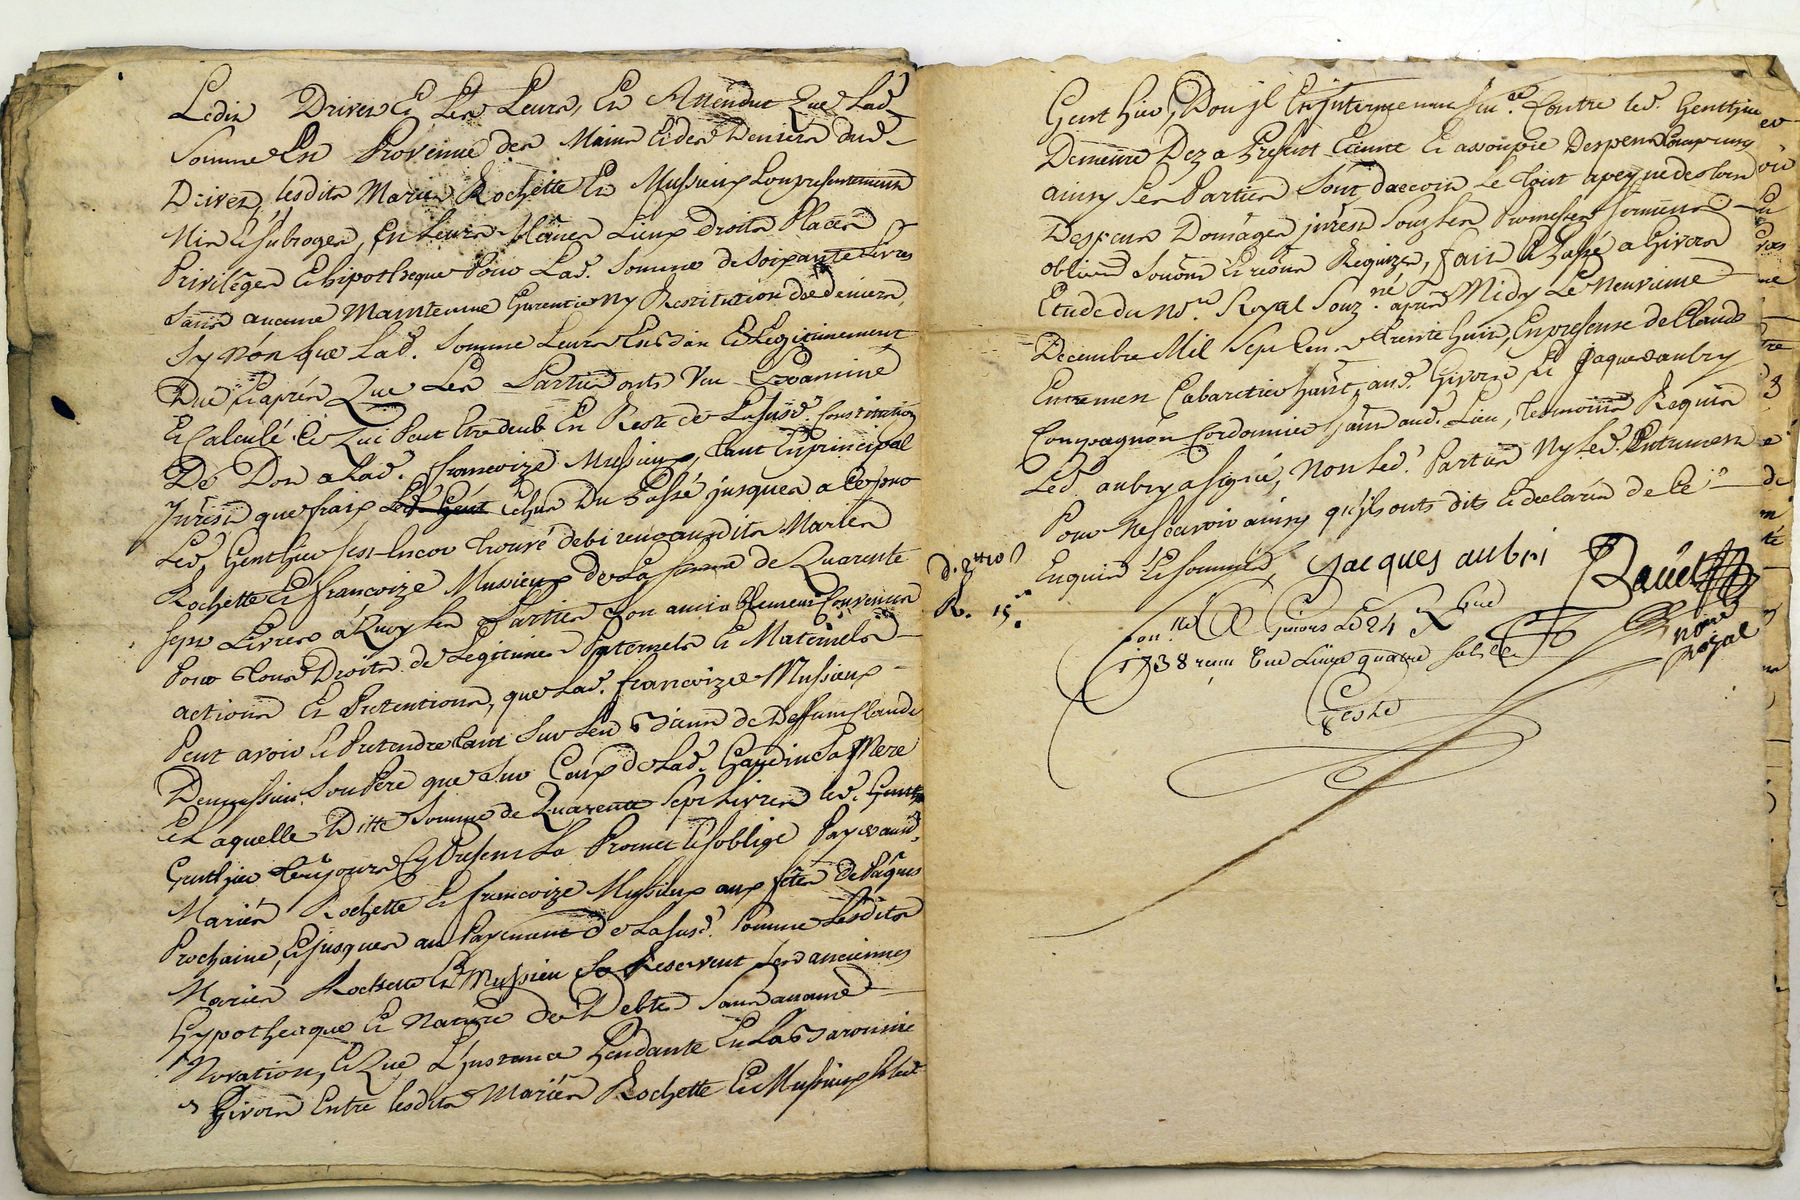 Ledit Drivet Et Les Leurs, Et Attendut Que Lad.
Somme Est Provenue des Mains Et des Deniers dud.
Drivet, lesdits Mariés Rochette Et Mussieux Lont presentement
Mis Et Subrogés, En Leurs Mêmes Lieux droits Places
Privilêges Et hipotheque Pour Lad. Somme de Soixante Livres
Sans aucune Maintenue Garentie Ny Restitution de deniers,
Sy nón que Lad. Somme Leurs Est dûe Et Legitimement
Due Et aprés Que Les Parties onts Vu Examiné
Et Calculé Ce Qui Peut Etre deub En Reste de Lasusd. Constitution
De Dot a Lad. francoize Mussieux, tant En principal
Jnterest que fraix Echus Du Passé jusques a Ce jour
Led. Genthieu sest Encor trouvé debiteur auxdits Mariés
Rochette Et francoize Mussieux de La somme de Quarente
Sept Livres á Quoy les Parties Son amiablement Convenues
Pour tous Droits de Legitimes Paternels Et Maternels
actions Et Pretentions, que Lad. francoize Mussieux
Peut avoir Et Pretendre tant Sur Les Biens de Deffunt Claude
Demussieu Son Pere que Sur Ceux de Lad. Gaudin Sa Mere
Et Laquelle Ditte Somme de Quarente Sept Livres led.
Genthieu toujours Cy Present La Promet Et Soblige Payer auxd.
Mariés Rochette Et francoize Mussieux aux fêtes de Pâques
Prochaine, Et jusques au Payement de Lasusd. Somme Lesdits
Mariés Rochette Et Mussieu Se Reservent Les anciennes
hypotheque Et Nature de Debte Sans aucune
Novation, Et Que L'jnstance Pendante En La Baronnie
Givors Entre lesdits Mariés Rochette Et Mussieux Et led.
Genthieu, Contre led. Genthieu
Demeure Dez a Present Eteinte Et assoupie Despens Compensés
ainsy Les Parties Sont daccord Le tout a peyne de tous
Despens Domâges jnterest Souz les Promesses Serments
obliend Soumôns Et renôns Requizes, fait Et Passé a Givors
Etude du No.re Royal Souz.né aprés Midy Le Neuvieme
Decembre Mil Sept Cent trente huit, En presense de Claude
Cabaretier haât. aud. Givors Et Jaques aubry
Compagnón Cordonnier haât aud. Lieu, temoins Requis
Led. aubry a Signé, Non Led. Parties Ny led.
Pour ne Scavoir ainsy qu'ils onts dits Et declarés de Ce
Enquis Et Sommés, Jacques aubri
Ravel
no.re
royal
R. 15 s.
Con.lé A Givors Le 24 Xbre
1738 recu Une Livre quatre sols
Geste